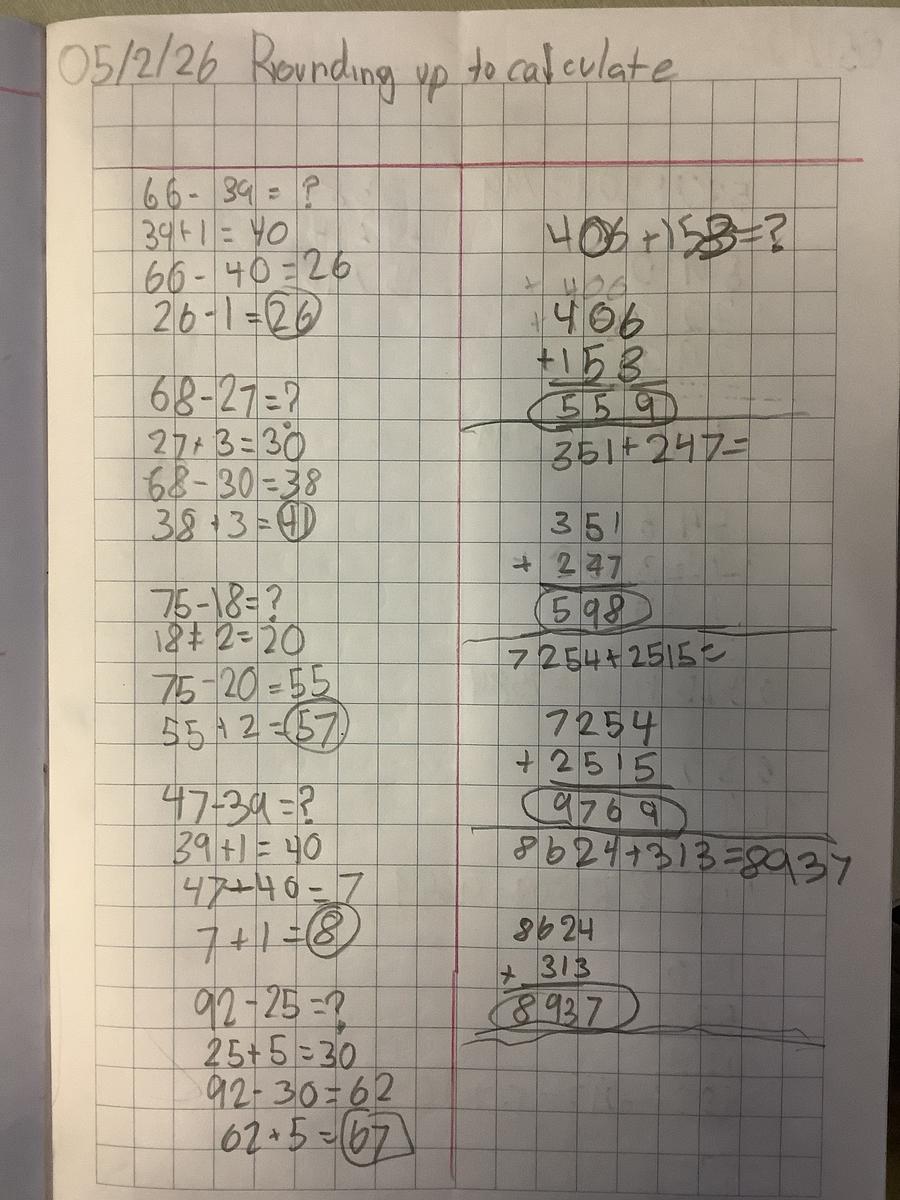 05/2/26 Rounding up to calculate
66 - 39 = ?
39 + 1 = 40
66 - 40 = 26
26 - 1 = 26
68 - 27 = ?
27 + 3 = 30
68 - 30 = 38
38 + 3 = 41
75 - 18 = ?
18 + 2 = 20
75 - 20 = 55
55 + 2 = 57
47 - 39 = ?
39 + 1 = 40
47 - 40 = 7
7 + 1 = 8
92 - 25 = ?
25 + 5 = 30
92 - 30 = 62
62 + 5 = 67
406 + 153 = ?
+ 406
406
+ 153
559
351 + 247 =
351
+ 247
598
7254 + 2515 =
7254
+ 2515
9769
8624 + 313 = 8937
8624
+ 313
8937